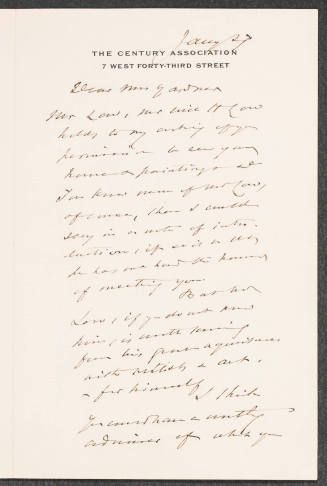 Jany 27
THE CENTURY ASSOCIATION
7 WEST FORTY-THIRD STREET
Dear Mrs Gardner
Mr Low, Mr Will H Low
holds to my asking of you
permission to see your
house & paintings &
You know more of Mr Low,
of course, than I could
say in a note of intro-
duction, if so it is that
he has not had the honor
of meeting you.
But Mr
Low, if you do not know
him, is worth knowing
from his great acquaintance
with artists & art,
& for himself
I think
You would have a worthy
admirer of what you